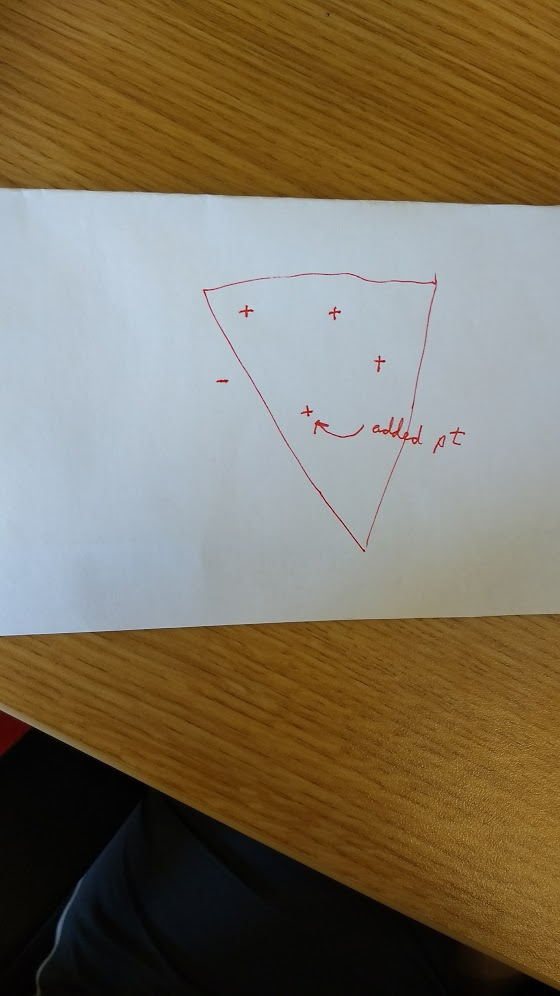 + +
- +
+
added pt